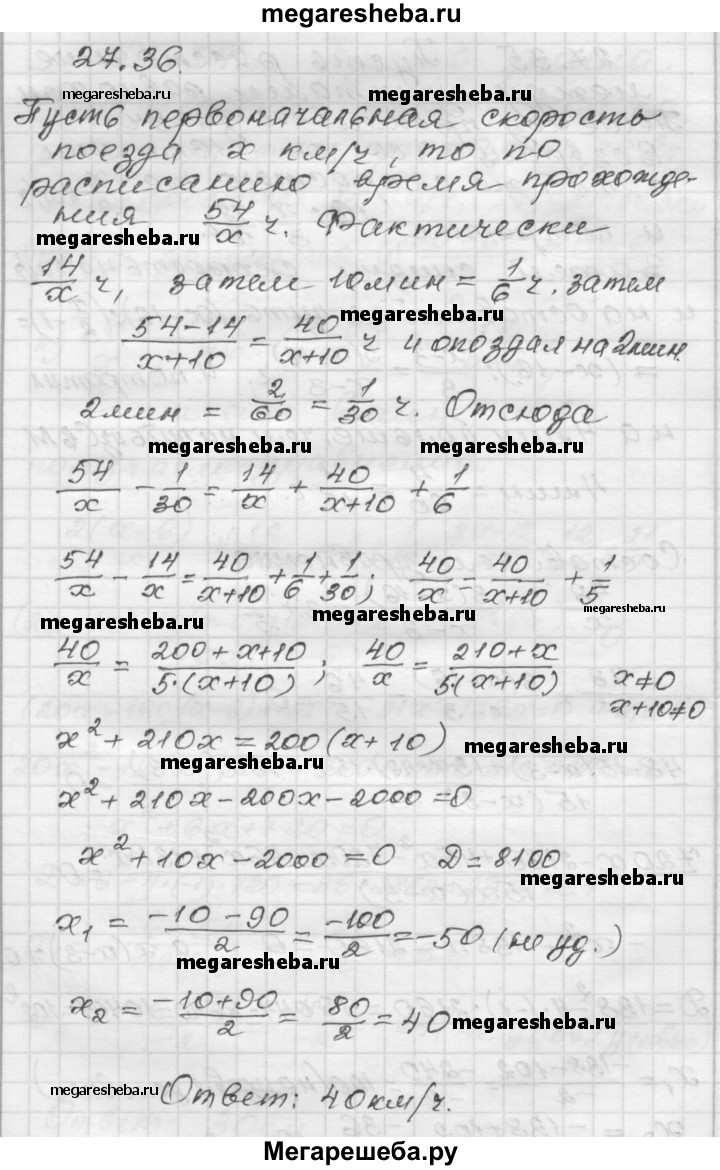 megaresheba.ru
27.36.
megaresheba.ru megaresheba.ru
Пусть первоначальная скорость
поезда x км/ч, то по
расписанию время прохожде-
ния 54/x ч. Фактически
megaresheba.ru
14/x ч, затем 10 мин = 1/6 ч. затем
megaresheba.ru
(54-14)/(x+10) = 40/(x+10) ч и опоздал на 2 мин.
2 мин = 2/60 = 1/30 ч. Отсюда
megaresheba.ru megaresheba.ru
54/x - 1/30 = 14/x + 40/(x+10) + 1/6
54/x - 14/x = 40/(x+10) + 1/6 + 1/30; 40/x = 40/(x+10) + 1/5
megaresheba.ru megaresheba.ru megaresheba.ru
40/x = (200+x+10)/(5·(x+10)); 40/x = (210+x)/(5·(x+10)) x≠0
x+10≠0
x² + 210x = 200(x+10)
megaresheba.ru megaresheba.ru
x² + 210x - 200x - 2000 = 0
x² + 10x - 2000 = 0 D = 8100
megaresheba.ru
x₁ = (-10-90)/2 = -100/2 = -50 (не уд.)
megaresheba.ru
x₂ = (-10+90)/2 = 80/2 = 40
megaresheba.ru
megaresheba.ru
Ответ: 40 км/ч.
Мегарешеба.ру